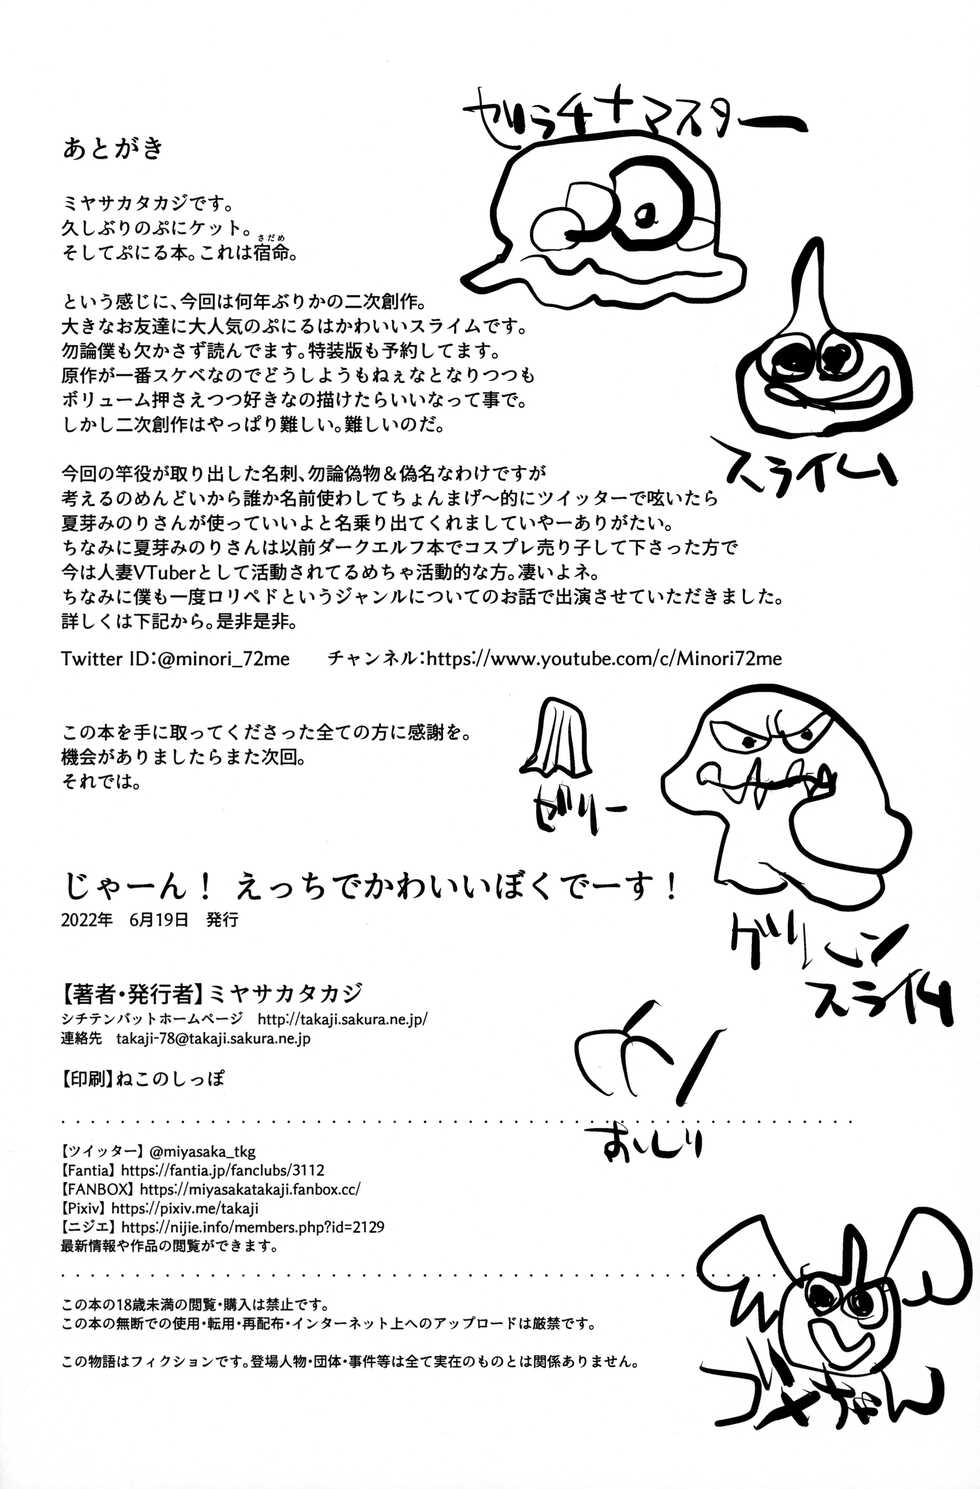 あとがき
ミヤサカタカジです。
久しぶりのぷにケット。
そしてぷにる本。これは宿命。
さだめ
という感じに、今回は何年ぶりかの二次創作。
大きなお友達に大人気のぷにるはかわいいスライムです。
勿論僕も欠かさず読んでます。特装版も予約してます。
原作が一番スケベなのでどうしようもねぇなとなりつつも
ボリューム押さえつつ好きなの描けたらいいなって事で。
しかし二次創作はやっぱり難しい。難しいのだ。
今回の竿役が取り出した名刺、勿論偽物＆偽名なわけですが
考えるのめんどいから誰か名前使わしてちょんまげ〜的にツイッターで呟いたら
夏芽みのりさんが使っていいよと名乗り出てくれましていやーありがたい。
ちなみに夏芽みのりさんは以前ダークエルフ本でコスプレ売り子して下さった方で
今は人妻VTuberとして活動されてるめちゃ活動的な方。凄いよネ。
ちなみに僕も一度ロリペドというジャンルについてのお話で出演させていただきました。
詳しくは下記から。是非是非。
Twitter ID：@minori_72me　　チャンネル：https://www.youtube.com/c/Minori72me
この本を手に取ってくださった全ての方に感謝を。
機会がありましたらまた次回。
それでは。
じゃーん！ えっちでかわいいぼくでーす！
2022年　6月19日　発行
【著者・発行者】ミヤサカタカジ
シチテンバットホームページ　http://takaji.sakura.ne.jp/
連絡先　takaji-78@takaji.sakura.ne.jp
【印刷】ねこのしっぽ
【ツイッター】@miyasaka_tkg
【Fantia】https://fantia.jp/fanclubs/3112
【FANBOX】https://miyasakatakaji.fanbox.cc/
【Pixiv】https://pixiv.me/takaji
【ニジエ】https://nijie.info/members.php?id=2129
最新情報や作品の閲覧ができます。
この本の18歳未満の閲覧・購入は禁止です。
この本の無断での使用・転用・再配布・インターネット上へのアップロードは厳禁です。
この物語はフィクションです。登場人物・団体・事件等は全て実在のものとは関係ありません。
ゼリラチナマスター
スライム
ゼリー
グリーン
スライム
おいしい
ゴメちゃん